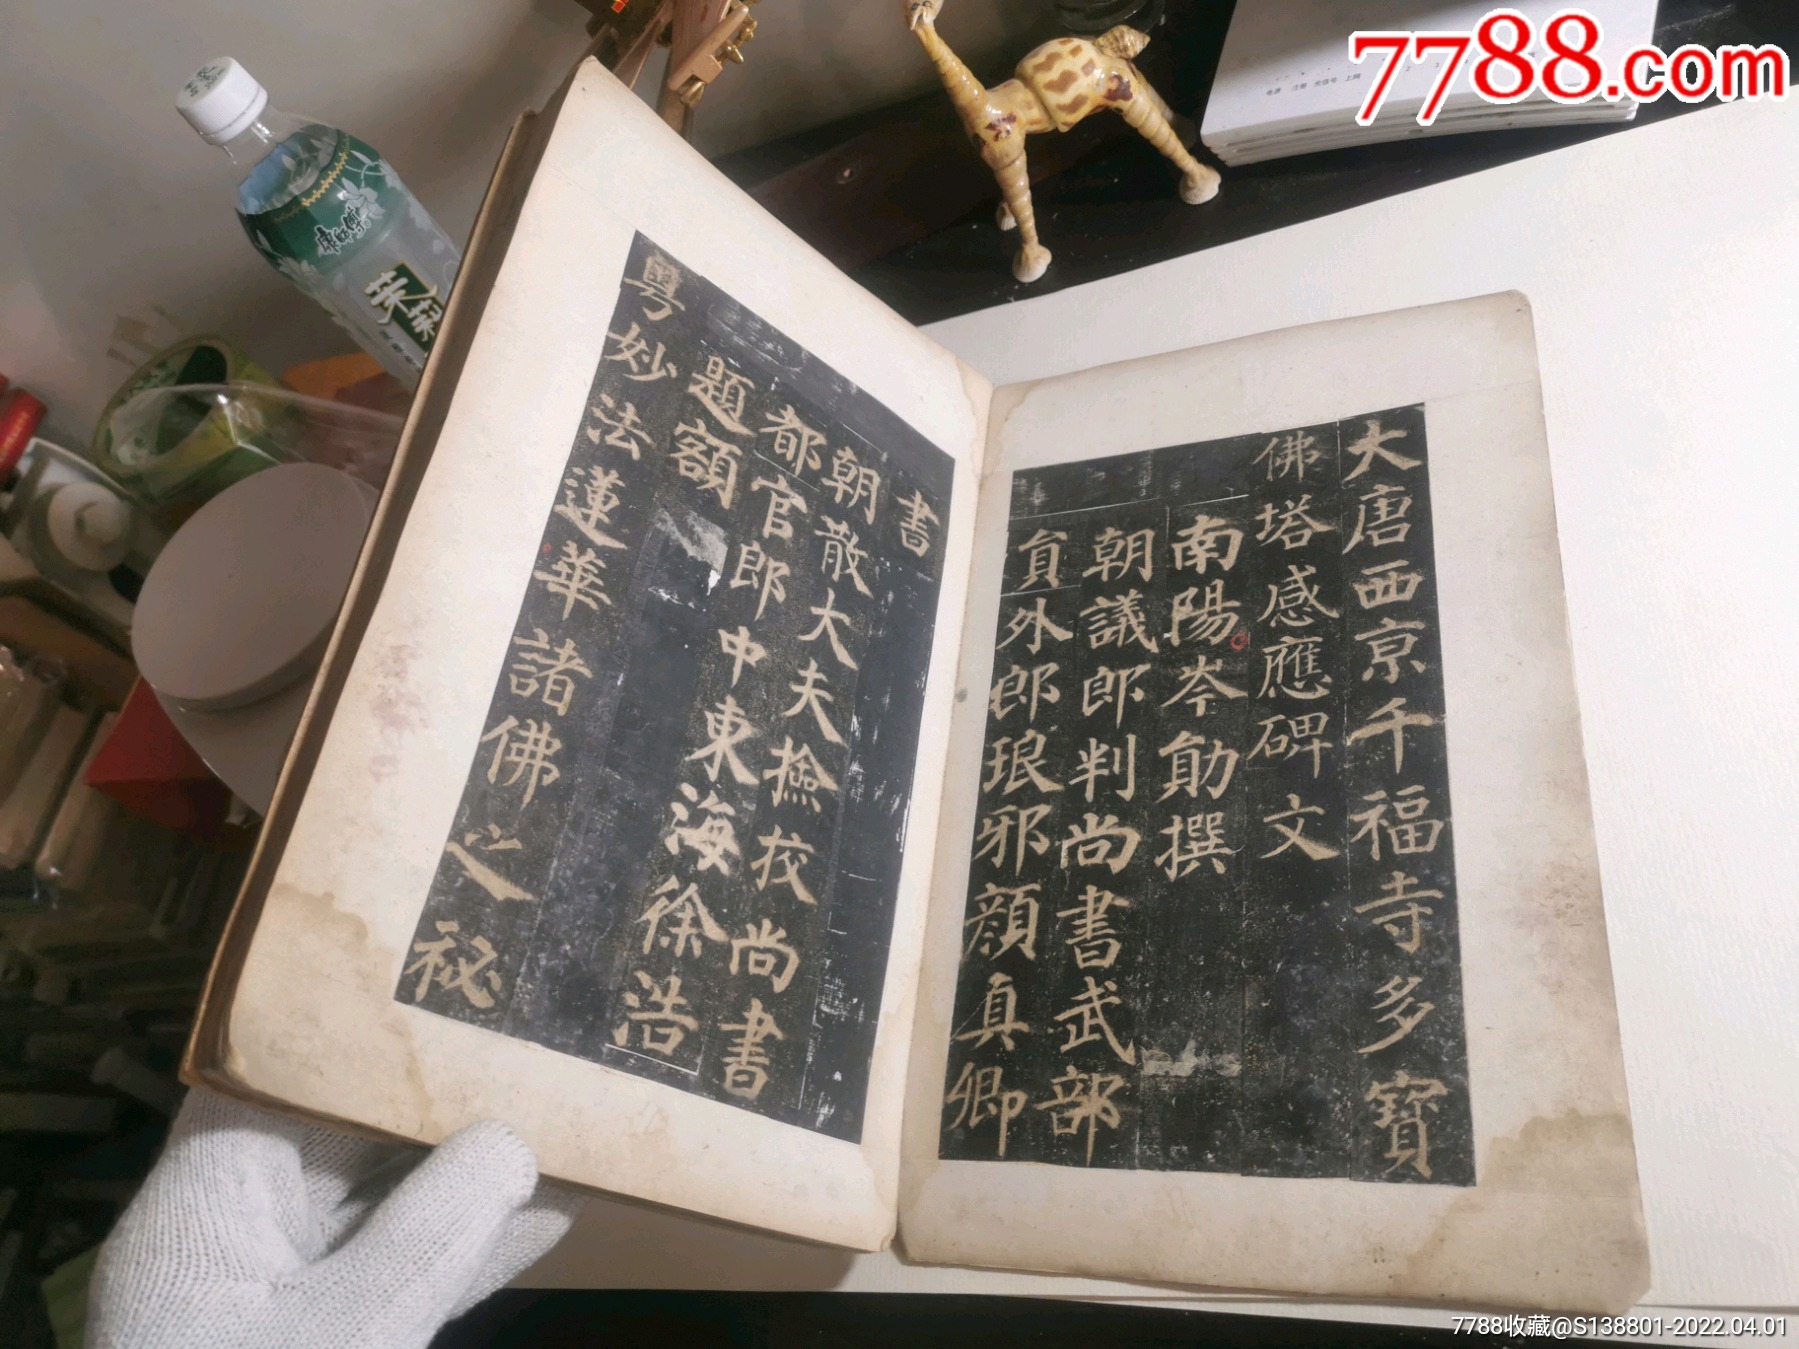 7788.com
大唐西京千福寺多寶
佛塔感應碑文
南陽岑勛撰
朝議郎判尚書武部
貟外郎琅邪顏真卿
書
朝散大夫撿挍尚書
都官郎中東海徐浩
題額
粵妙法蓮華諸佛之祕
康師傅
茉莉
7788收藏@S138801-2022.04.01